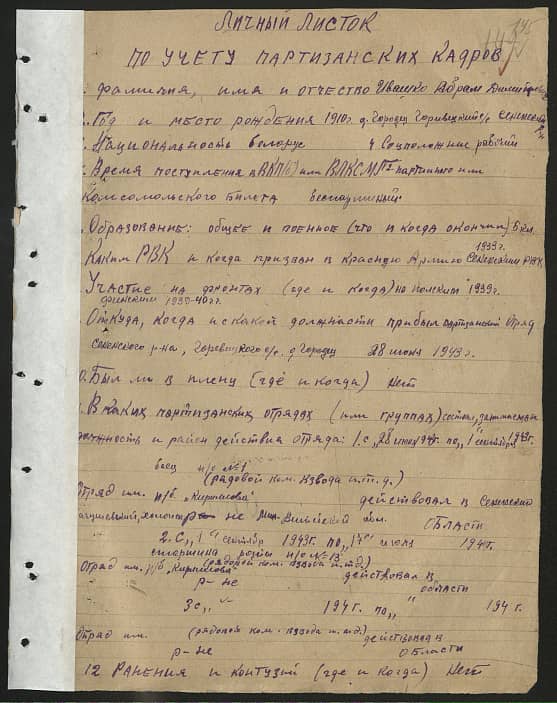 Личный Листок
по учету партизанских кадров
. Фамилия, имя и отчество Ивашко Абрам
. Год и место рождения 1910г. д. Городец Горивецкий с/с Сенненск
. Национальность белорус 4 Соцположние рабочий
. Время поступления в ВКП(б) или ВЛКСМ № партийного или
Комсомольского билета беспартийный
. Образование: общее и военное (что и когда окончил) 5 кл.
1939г.
Каким РВК и когда призван в красную Армию Сенненским РВК
. Участие на фронтах (где и когда) на польским 1939г.
финским 1939-40гг.
Откуда, когда и с какой должности прибыл партизанский отряд
Сенненского р-на, Горевицкого с/с. д Городец 28 июня 1943г.
0. Был ли в плену (где и когда) Нет
. В каких партизанских отрядах (или группах) состоял, занимаемая
должность и район действия отряда: 1. с „28 июня 1943г. по „1" сентября 1943г.
боец п/о № 1
(рядовой ком. взвода и.т. д.)
Отряд им. п/б. „Кирпичова" действовал в Сенненско
р-не обл. Области
2. С „1" сентябр 1943г. по „17" июля 194 г.
старшина роты п/о № 13
(рядовой ком. взвода и.т.д.)
Отряд им. п/б „Кирпичова" действовал в
р-не области
3 с „ 194 г. по „ 194 г.
Отряд им. (рядовой ком. взвода и. т.д.) действовал в
р-не Области
12 Ранения и контузий (где и когда) Нет